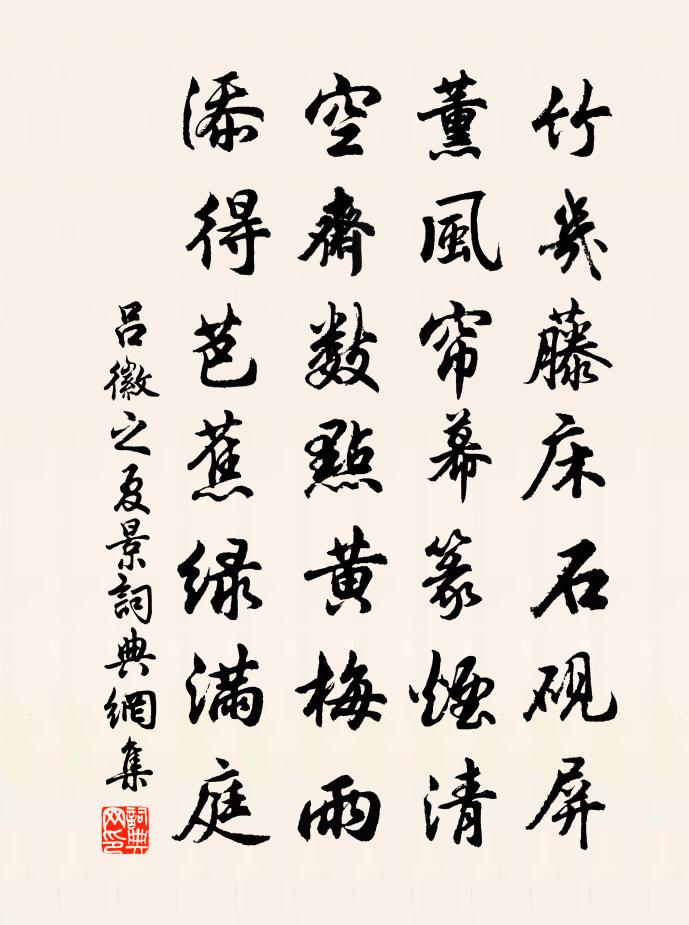 竹幾藤床石硯屏
薰風帘幕篆煙清
空齋數點黃梅雨
添得芭蕉綠滿庭
呂徽之夏景詞典網集
詞典網印